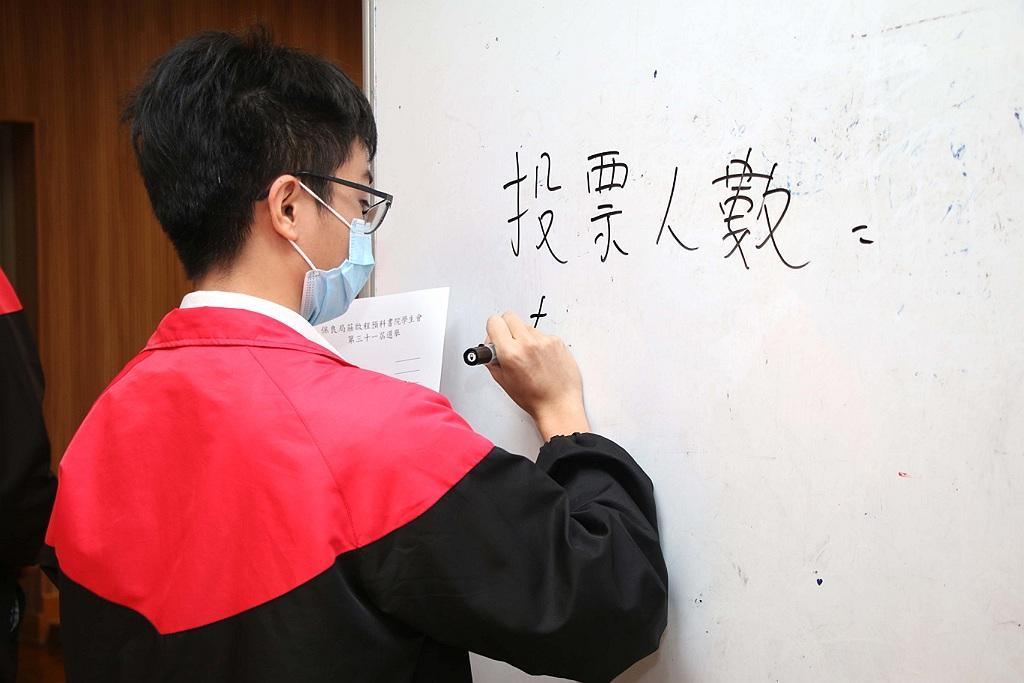 投票人數 =
保良局莊啟程預科書院學生會
第三十一屆選舉